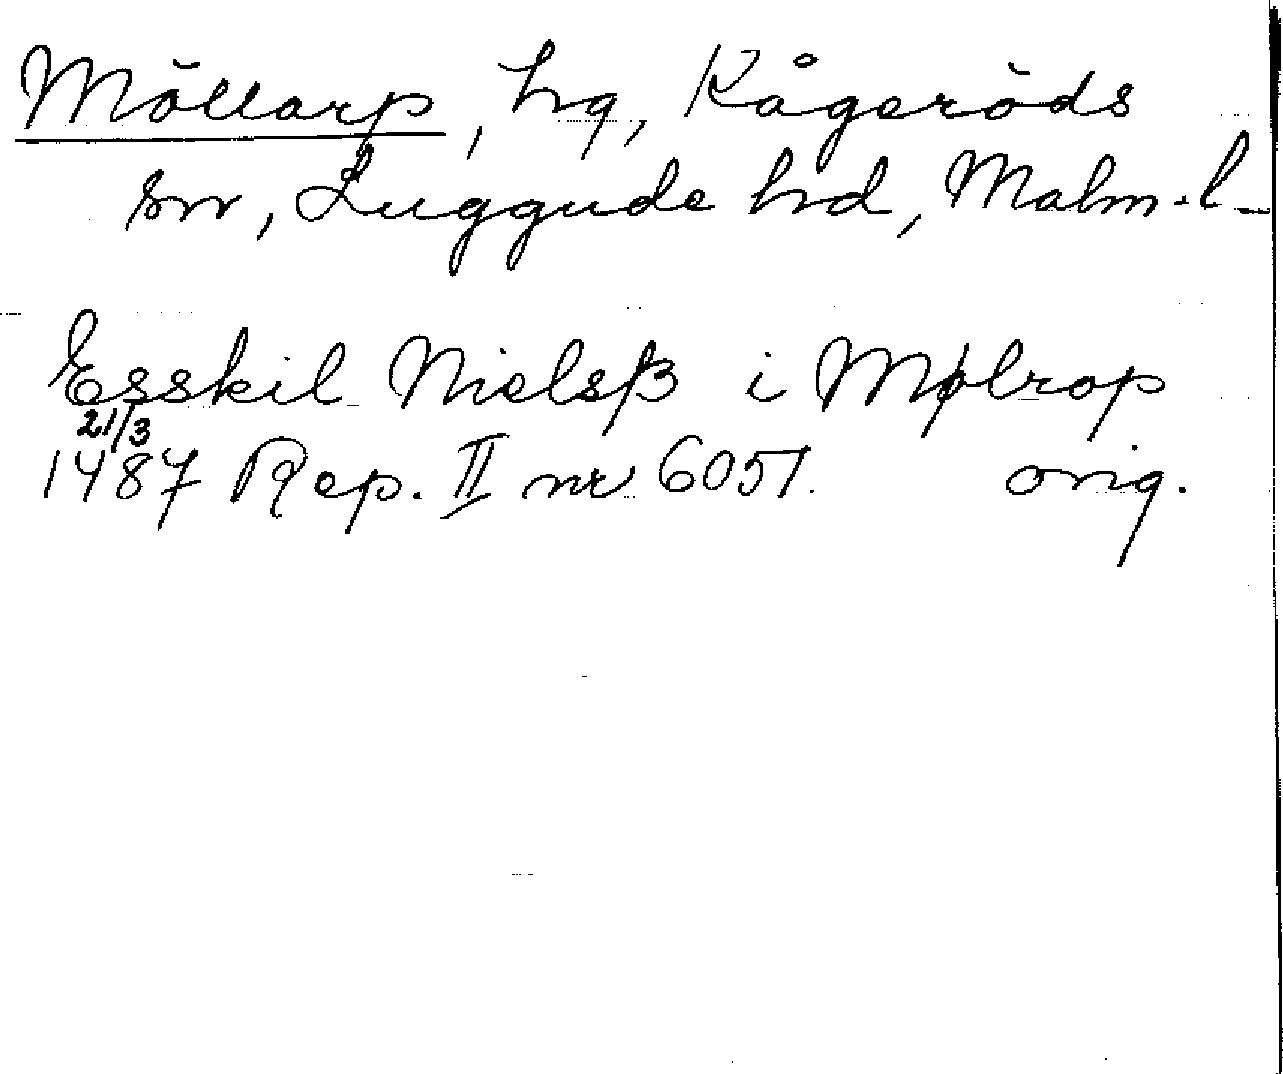 Möllarp, hg, Kågeröds
sn, Luggude hd, Malm.l.
Esskil Nielsß i Mølrop
21/3
1487 Rep. II nr 6051. orig.